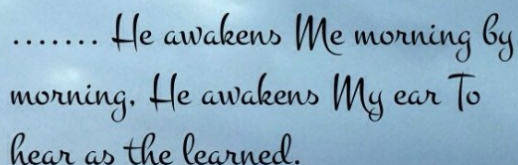 ....... He awakens Me morning by
morning, He awakens My ear To
hear as the learned.